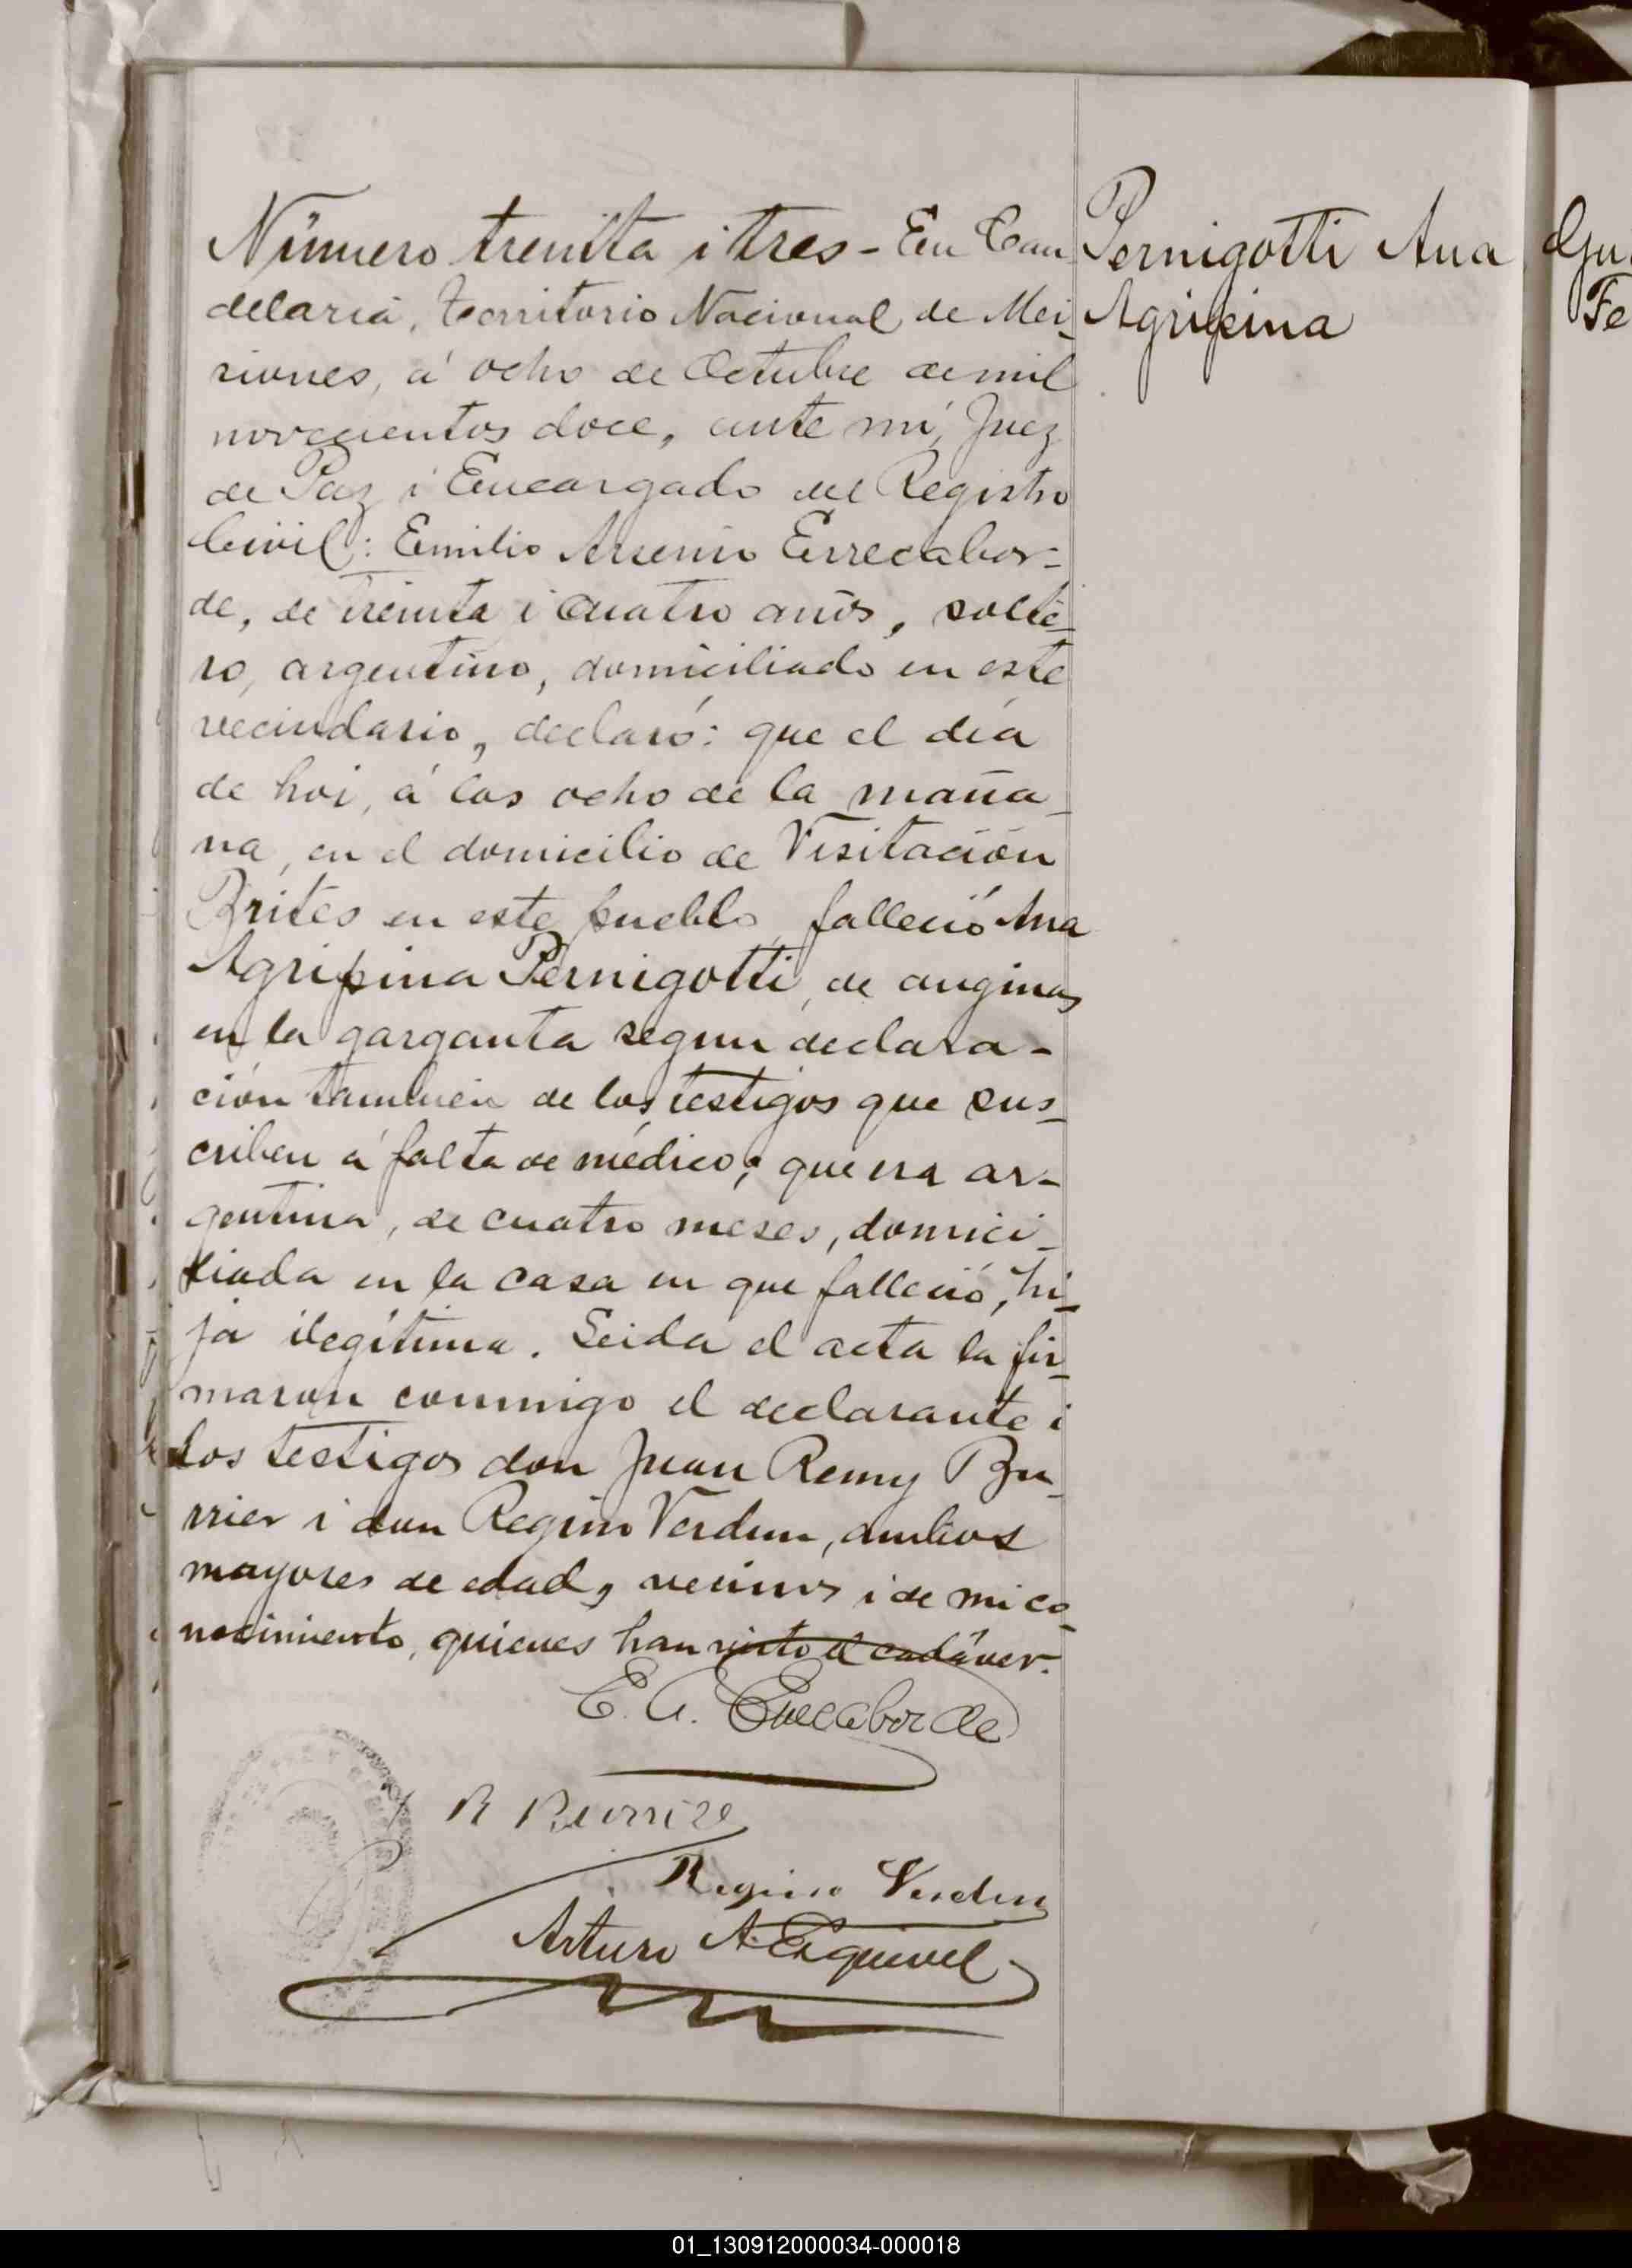 Número treinta i tres - En Can
delaria, Territorio Nacional de Mi-
siones, á ocho de Octubre de mil
novecientos doce, ante mí, Juez
de Paz i Encargado del Registro
Civil: Emilio Arsenio Errecabor-
de, de treinta i cuatro años, solte-
ro, argentino, domiciliado en este
vecindario, declaró: que el día
de hoi, á las ocho de la maña-
na, en el domicilio de Visitación
Brites en este pueblo, falleció Ana
Agripina Pernigotti, de anginas
en la garganta segun declara-
ción tambien de los testigos que sus-
criben á falta de médico; que era ar-
gentina, de cuatro meses, domici-
liada en la casa en que falleció, hi-
ja ilegítima. Leida el acta la fir-
maron conmigo el declarante i
los testigos don Juan Remy Bu-
rrier i don Regino Verdun, ambos
mayores de edad, vecinos i de mi co-
nocimiento, quienes han visto el cadáver.
E. A. Errecaborde
R Burrier
Regino Verdun
Arturo A. Esquivel
Pernigotti Ana
Agripina
Fe
01_130912000034-000018